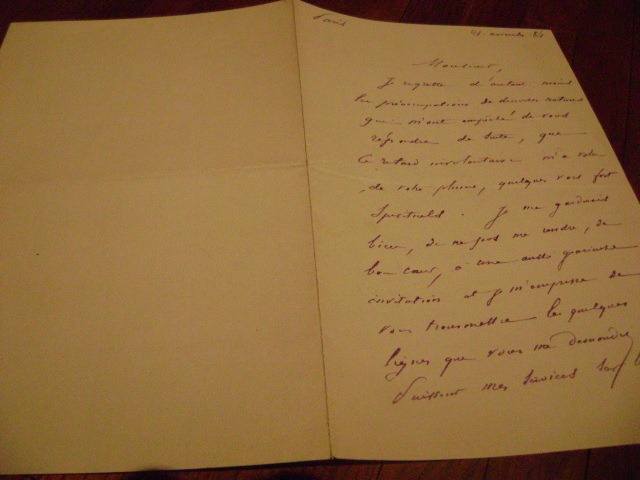 Paris
novembre 84
Monsieur,
Je regrette d'autant moins
les préoccupations de diverses natures
qui m'ont empêché de vous
répondre de suite, que
ce retard involontaire m'a valu
de votre plume, quelques vers fort
spirituels. Je me garderais
bien, de ne pas me rendre, de
bon cœur, à une aussi gracieuse
invitation et je m'empresse de
vous transmettre les quelques
lignes que vous me demandez
Puissent mes